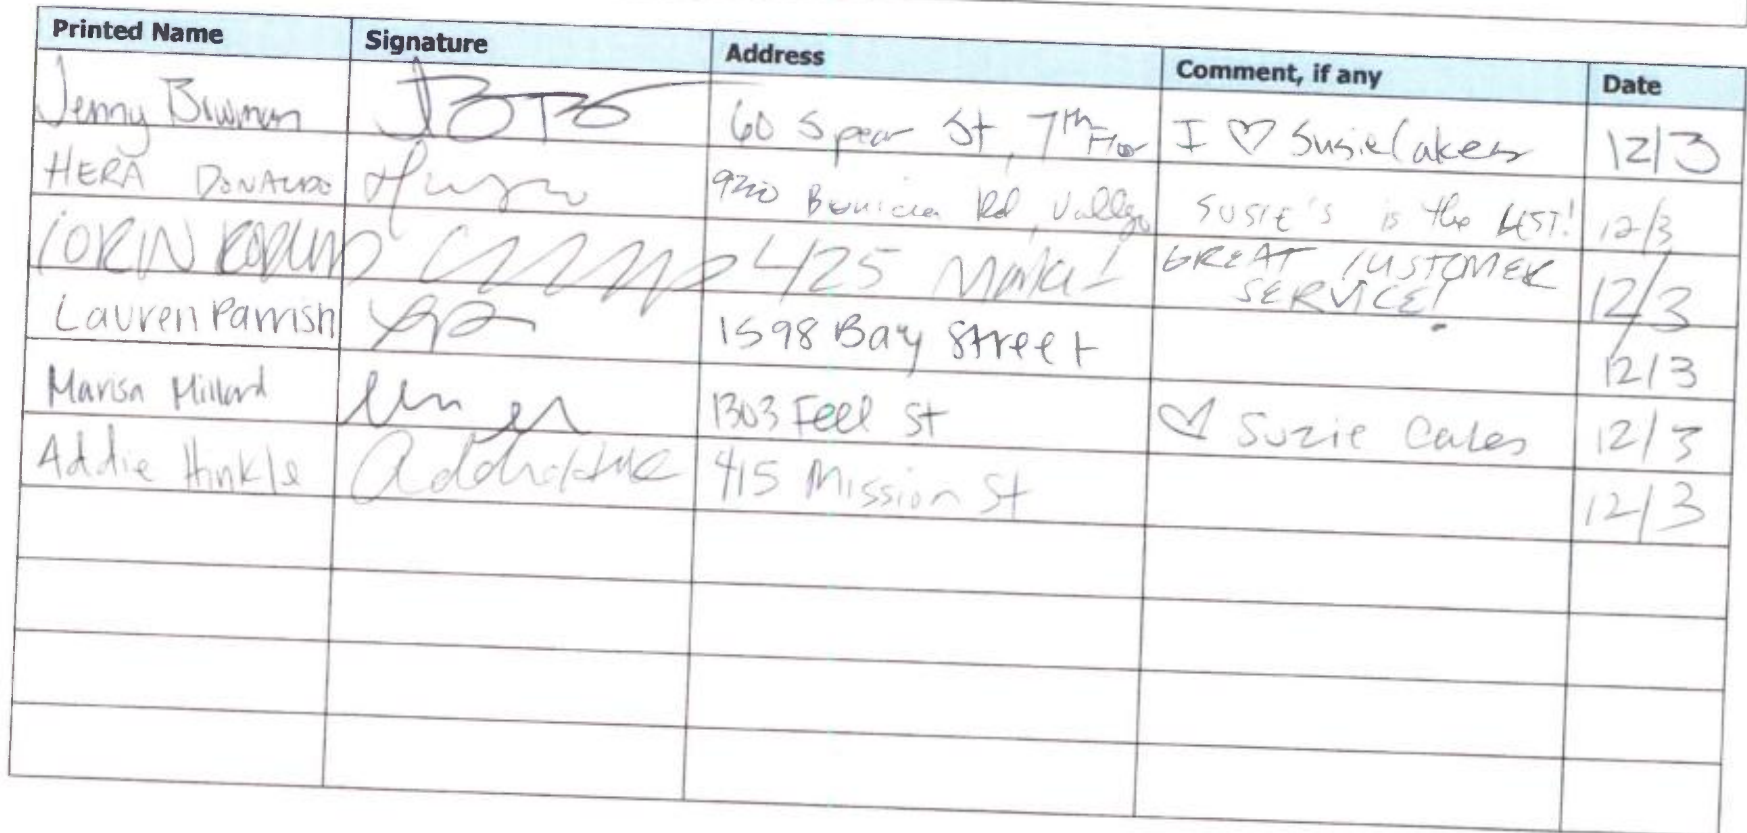 Printed Name Signature Address Comment, if any Date
Jenny 60 Spear St, 7th Floor I ♡ SusieCakes 12/3
HERA DONALDO Rd, Vallejo SUSIE'S is the BEST! 12/3
LORIN 425 Market GREAT CUSTOMER SERVICE! 12/3
Lauren Parrish 1598 Bay Street 12/3
Marisa Millard 1303 Fell St ♡ Suzie Cakes 12/3
Addie Hinkle 415 Mission St 12/3